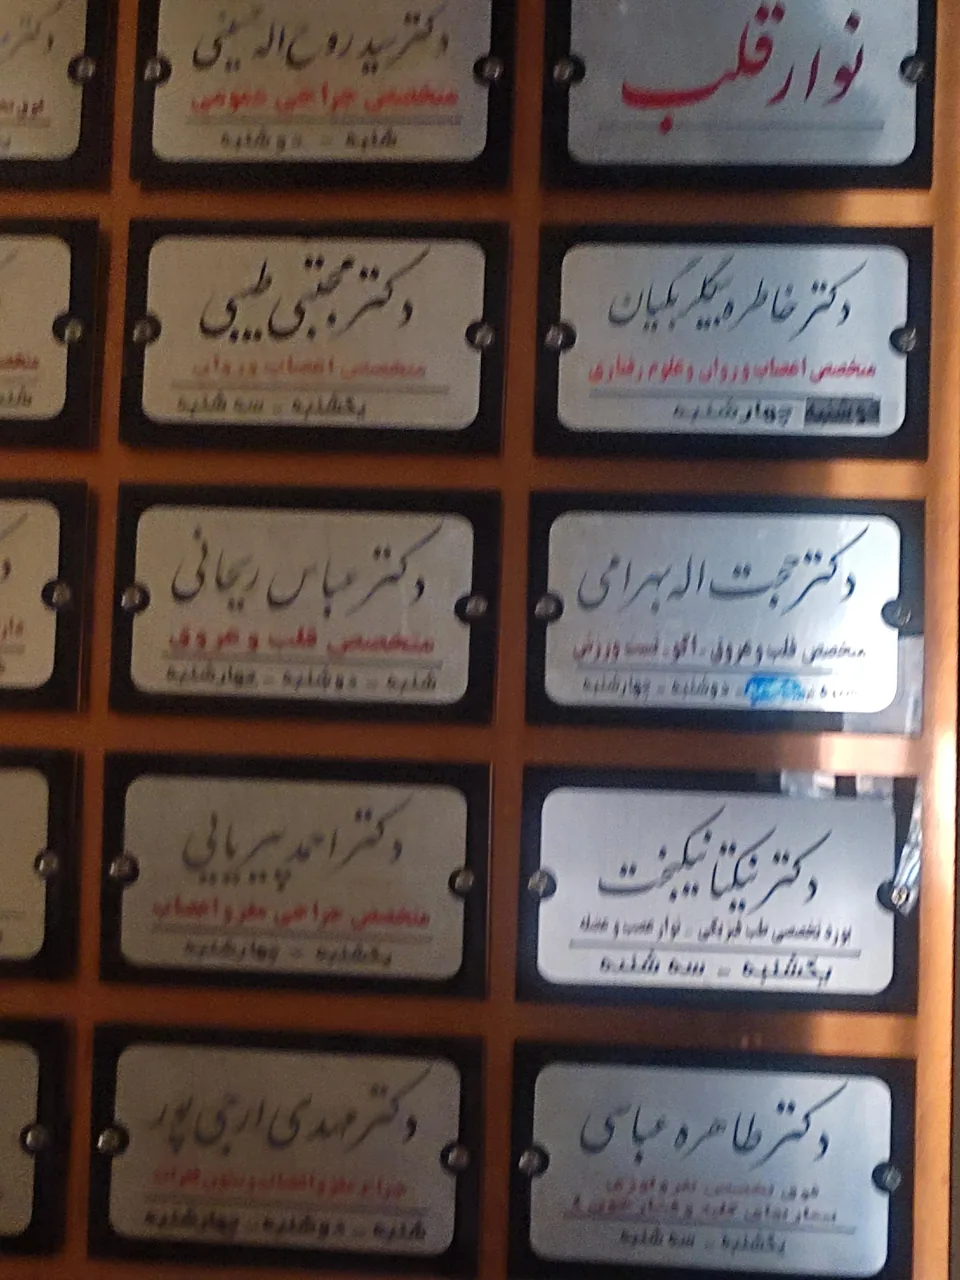 نوار قلب
دکتر سید روح اله حسینی
متخصص جراحی عمومی
شنبه - دوشنبه
دکتر خاطره بیگلربگیان
متخصص اعصاب و روان و علوم رفتاری
دوشنبه چهارشنبه
دکتر مجتبی طیبی
متخصص اعصاب و روان
یکشنبه - سه شنبه
دکتر حجت اله بهرامی
متخصص قلب و عروق - اکو - تست ورزش
دوشنبه - چهارشنبه
دکتر عباس ریحانی
متخصص قلب و عروق
شنبه - دوشنبه - چهارشنبه
دکتر نیکتا نیکبخت
بورد تخصصی طب فیزیکی - نوار عصب و عضله
یکشنبه - سه شنبه
دکتر احمد پیریایی
متخصص جراحی مغز و اعصاب
یکشنبه - چهارشنبه
دکتر طاهره عباسی
فوق تخصصی نفرولوژی
بیماریهای کلیه و فشار خون
یکشنبه - سه شنبه
دکتر مهدی ارجی پور
جراح مغز و اعصاب و ستون فقرات
شنبه - دوشنبه - چهارشنبه